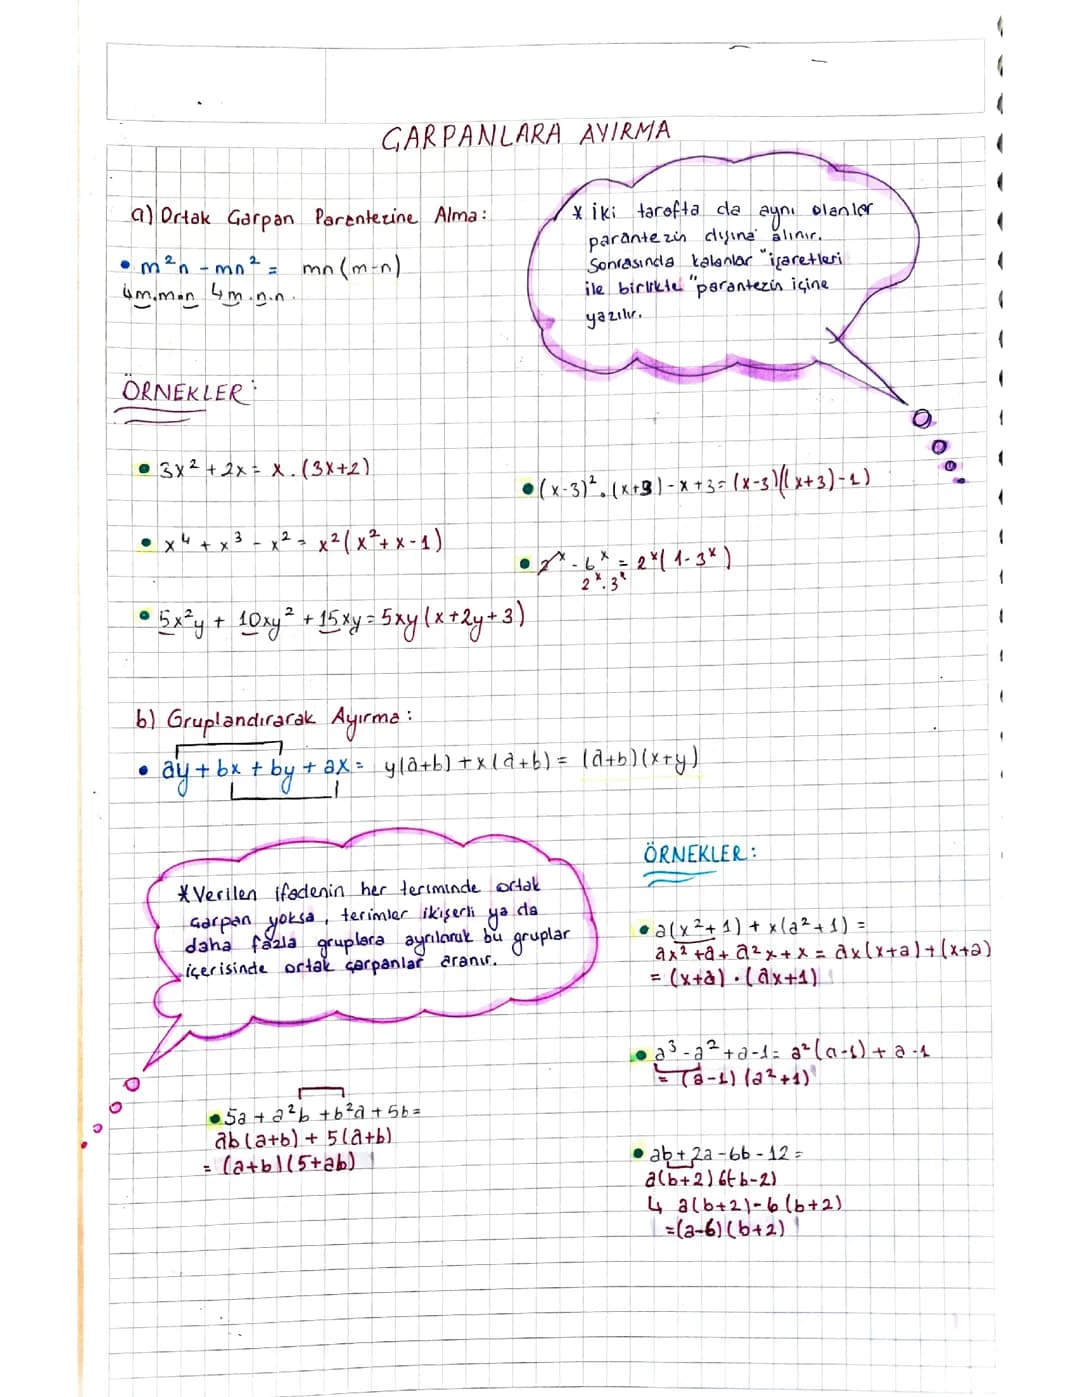 ÇARPANLARA AYIRMA
a) Ortak Çarpan Parantezine Alma:
• m²n - mn² = mn(m-n)
↳m.m.n ↳m.n.n.
* İki tarafta da aynı olanlar
parantezin dışına alınır.
Sonrasında kalanlar "işaretleri
ile birlikte" parantezin içine
yazılır.
ÖRNEKLER:
• 3x² + 2x = x.(3x+2)
• x⁴ + x³ - x² = x²(x²+x-1)
• 5x²y + 10xy² + 15xy = 5xy(x+2y+3)
• (x-3)².(x+3)-x+3=(x-3)((x+3)-1)
• 2ˣ - 6ˣ = 2ˣ(1-3ˣ)
2ˣ.3ˣ
b) Gruplandırarak Ayırma:
• ay + bx + by + ax = y(a+b)+x(a+b) = (a+b)(x+y)
* Verilen ifadenin her teriminde ortak
çarpan yoksa, terimler ikişerli ya da
daha fazla gruplara ayrılarak bu gruplar
içerisinde ortak çarpanlar aranır.
• 5a + a²b + b²a + 5b =
ab(a+b) + 5(a+b)
= (a+b)(5+ab)
ÖRNEKLER:
• a(x²+1) + x(a²+1) =
ax²+a+a²x+x = ax(x+a)+(x+a)
= (x+a).(ax+1)
• a³-a²+a-1= a²(a-1)+a-1
= (a-1)(a²+1)
• ab+2a-6b-12=
a(b+2)6(-b-2)
↳ a(b+2)-6(b+2)
=(a-6)(b+2)